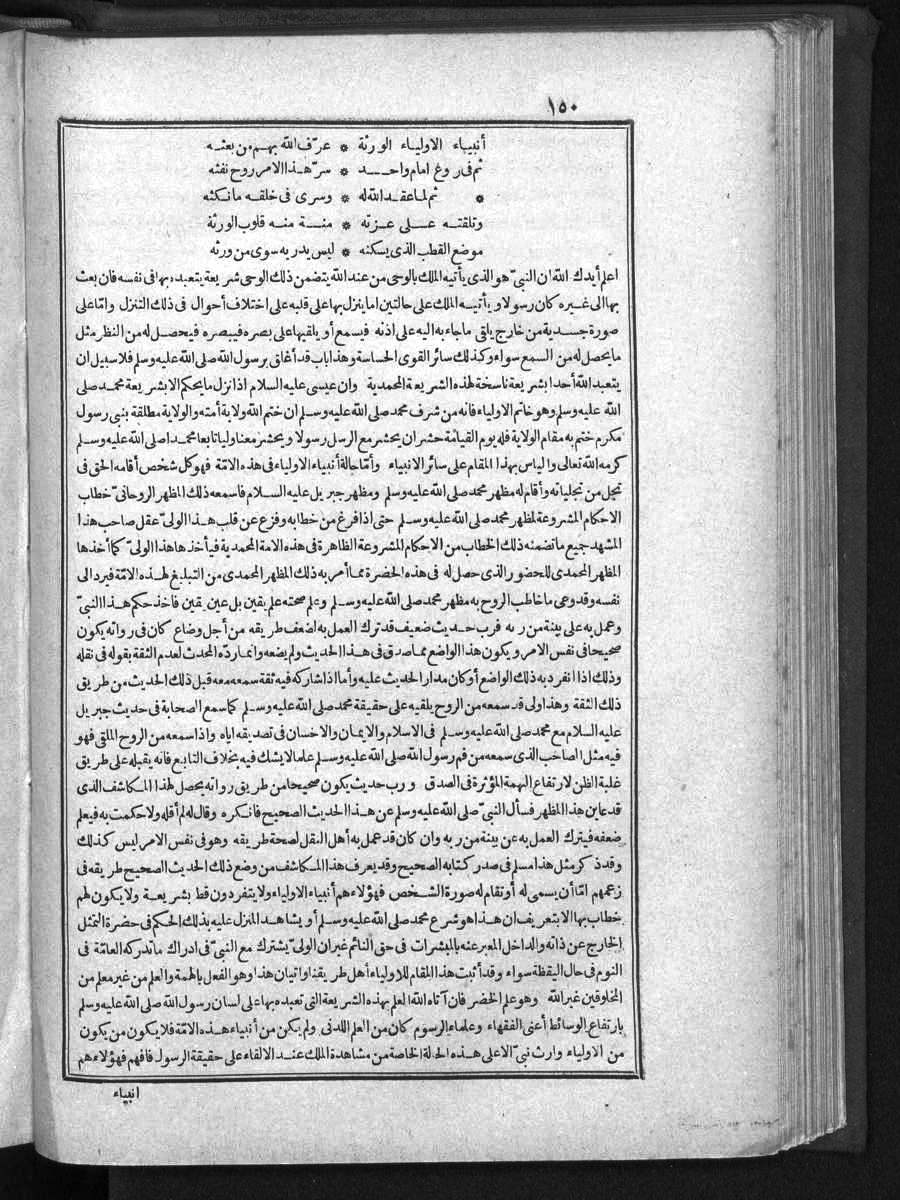 ١٥٠
أنبياء الاولياء الورثة * عرّف الله بهم من بعثه
ثم فى روع امام واحد * سرّ هذا الامر روح نفثه
* ثم لما عقد الله له * وسرى فى خلقه ما نكثه
وتلقته على عزته * منة منه قلوب الورثة
موضع القطب الذى يسكنه * ليس يدريه سوى من ورثه
اعلم أيدك الله ان النبىّ هو الذى يأتيه الملك بالوحى من عند الله يتضمن ذلك الوحى شريعة يتعبد بها فى نفسه فان بعث
بها الى غيره كان رسولا ويأتيه الملك على حالتين اما ينزل بها على قلبه على اختلاف أحوال فى ذلك التنزل واما على
صورة جسدية من خارج يلقى ما جاء به اليه على اذنه فيسمع أو يلقيها على بصره فيبصره فيحصل له من النظر مثل
ما يحصل له من السمع سواء وكذلك سائر القوى الحساسة وهذا باب قد أغلق برسول الله صلى الله عليه وسلم فلا سبيل ان
يتعبد الله أحدا بشريعة ناسخة لهذه الشريعة المحمدية وان عيسى عليه السلام اذا نزل ما يحكم الا بشريعة محمد صلى
الله عليه وسلم وهو خاتم الاولياء فانه من شرف محمد صلى الله عليه وسلم ان ختم الله ولاية أمته والولاية مطلقة بنبى رسول
مكرم ختم به مقام الولاية فله يوم القيامة حشران يحشر مع الرسل رسولا ويحشر معنا وليا تابعا محمدا صلى الله عليه وسلم
كرمه الله تعالى والياس بهذا المقام على سائر الانبياء وأما حالة أنبياء الاولياء فى هذه الامّة فهو كل شخص أقامه الحق فى
تجل من تجلياته وأقام له مظهر محمد صلى الله عليه وسلم ومظهر جبريل عليه السلام فاسمعه ذلك المظهر الروحانىّ خطاب
الاحكام المشروعة لمظهر محمد صلى الله عليه وسلم حتى اذا فرغ من خطابه وفزع عن قلب هذا الولىّ عقل صاحب هذا
المشهد جميع ما تضمنه ذلك الخطاب من الاحكام المشروعة الظاهرة فى هذه الامة المحمدية فيأخذها هذا الولىّ كما أخذها
المظهر المحمدى للحضور الذى حصل له فى هذه الحضرة مما أمر به ذلك المظهر المحمدى من التبليغ لهذه الامّة فيرد الى
نفسه وقد وعى ما خاطب الروح به مظهر محمد صلى الله عليه وسلم وعلم صحته علم يقين بل عين يقين فاخذ حكم هذا النبىّ
وعمل به على بينة من ربه فرب حديث ضعيف قد ترك العمل به لضعف طريقه من أجل وضاع كان فى رواته يكون
صحيحا فى نفس الامر ويكون هذا الواضع مما صدق فى هذا الحديث ولم يضعه وانما ردّه المحدث لعدم الثقة بقوله فى نقله
وذلك اذا انفرد به ذلك الواضع أو كان مدار الحديث عليه وأما اذا شاركه فيه ثقة سمعه معه قبل ذلك الحديث من طريق
ذلك الثقة وهذا ولى قد سمعه من الروح يلقيه على حقيقة محمد صلى الله عليه وسلم كما سمع الصحابة فى حديث جبريل
عليه السلام مع محمد صلى الله عليه وسلم فى الاسلام والايمان والاحسان فى تصديقه اياه واذا سمعه من الروح الملقى فهو
فيه مثل الصاحب الذى سمعه من فم رسول الله صلى الله عليه وسلم علما لا يشك فيه بخلاف التابع فانه يقبله على طريق
غلبة الظن لارتفاع التهمة المؤثرة فى الصدق ورب حديث يكون صحيحا من طريق رواته يحصل لهذا المكاشف الذى
قد عاين هذا المظهر فسأل النبىّ صلى الله عليه وسلم عن هذا الحديث الصحيح فانكره وقال له لم أقله ولا حكمت به فيعلم
ضعفه فيترك العمل به عن بينة من ربه وان كان قد عمل به أهل النقل لصحة طريقه وهو فى نفس الامر ليس كذلك
وقد ذكر مثل هذا مسلم فى صدر كتابه الصحيح وقد يعرف هذا المكاشف من وضع ذلك الحديث الصحيح طريقه فى
زعمهم امّا أن يسمى له أو تقام له صورة الشخص فهؤلاء هم أنبياء الاولياء ولا يتفردون قط بشريعة ولا يكون لهم
خطاب بها الا بتعريف ان هذا هو شرع محمد صلى الله عليه وسلم أو يشاهد المنزل عليه بذلك الحكم فى حضرة التمثل
الخارج عن ذاته والداخل المعبر عنه بالمبشرات فى حق النائم غير ان الولىّ يشترك مع النبىّ فى ادراك ما تدركه العامّة فى
النوم فى حال اليقظة سواء وقد أثبت هذا المقام للاولياء أهل طريقنا واتيان هذا وهو الفعل بالهمة والعلم من غير معلم من
المخلوقين غير الله وهو علم الخضر فان آتاه الله العلم بهذه الشريعة التى تعبده بها على لسان رسول الله صلى الله عليه وسلم
بارتفاع الوسائط أعنى الفقهاء وعلماء الرسوم كان من العلم اللدنى ولم يكن من أنبياء هذه الامّة فلا يكون من يكون
من الاولياء وارث نبىّ الا على هذه الحالة الخاصة من مشاهدة الملك عند الالقاء على حقيقة الرسول فافهم فهؤلاء هم
انبياء